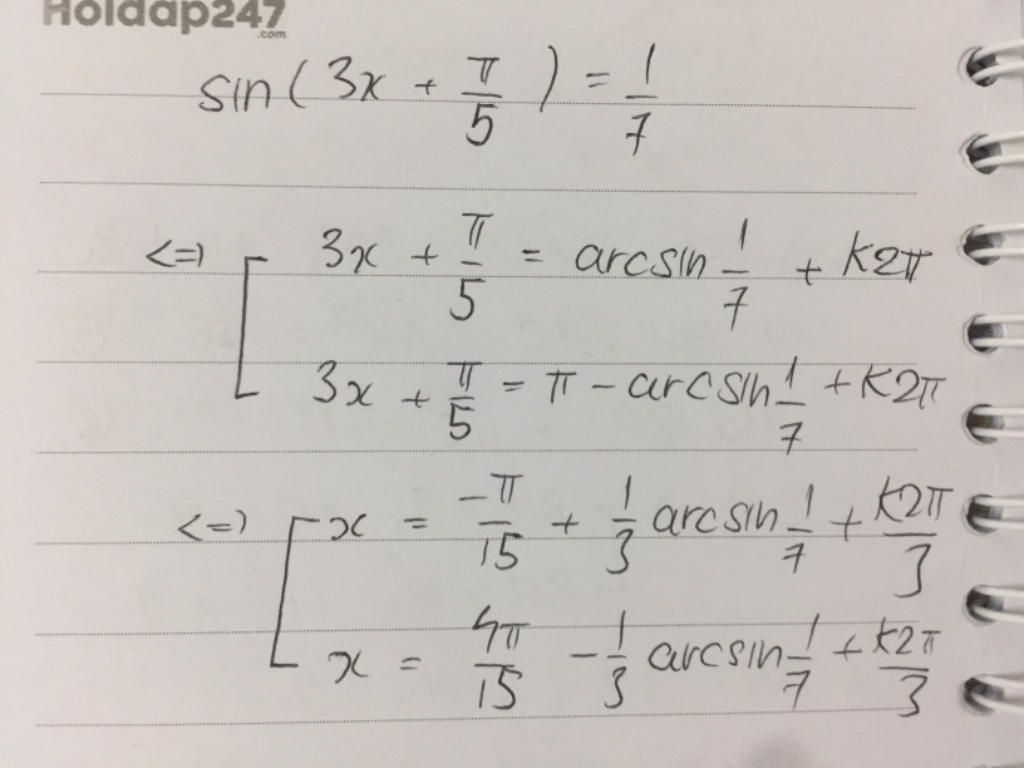 Hoidap247
.com
sin(3x + π/5) = 1/7
<=> [ 3x + π/5 = arcsin 1/7 + k2π
3x + π/5 = π - arcsin 1/7 + k2π
<=> [ x = -π/15 + 1/3 arcsin 1/7 + k2π/3
x = 4π/15 - 1/3 arcsin 1/7 + k2π/3